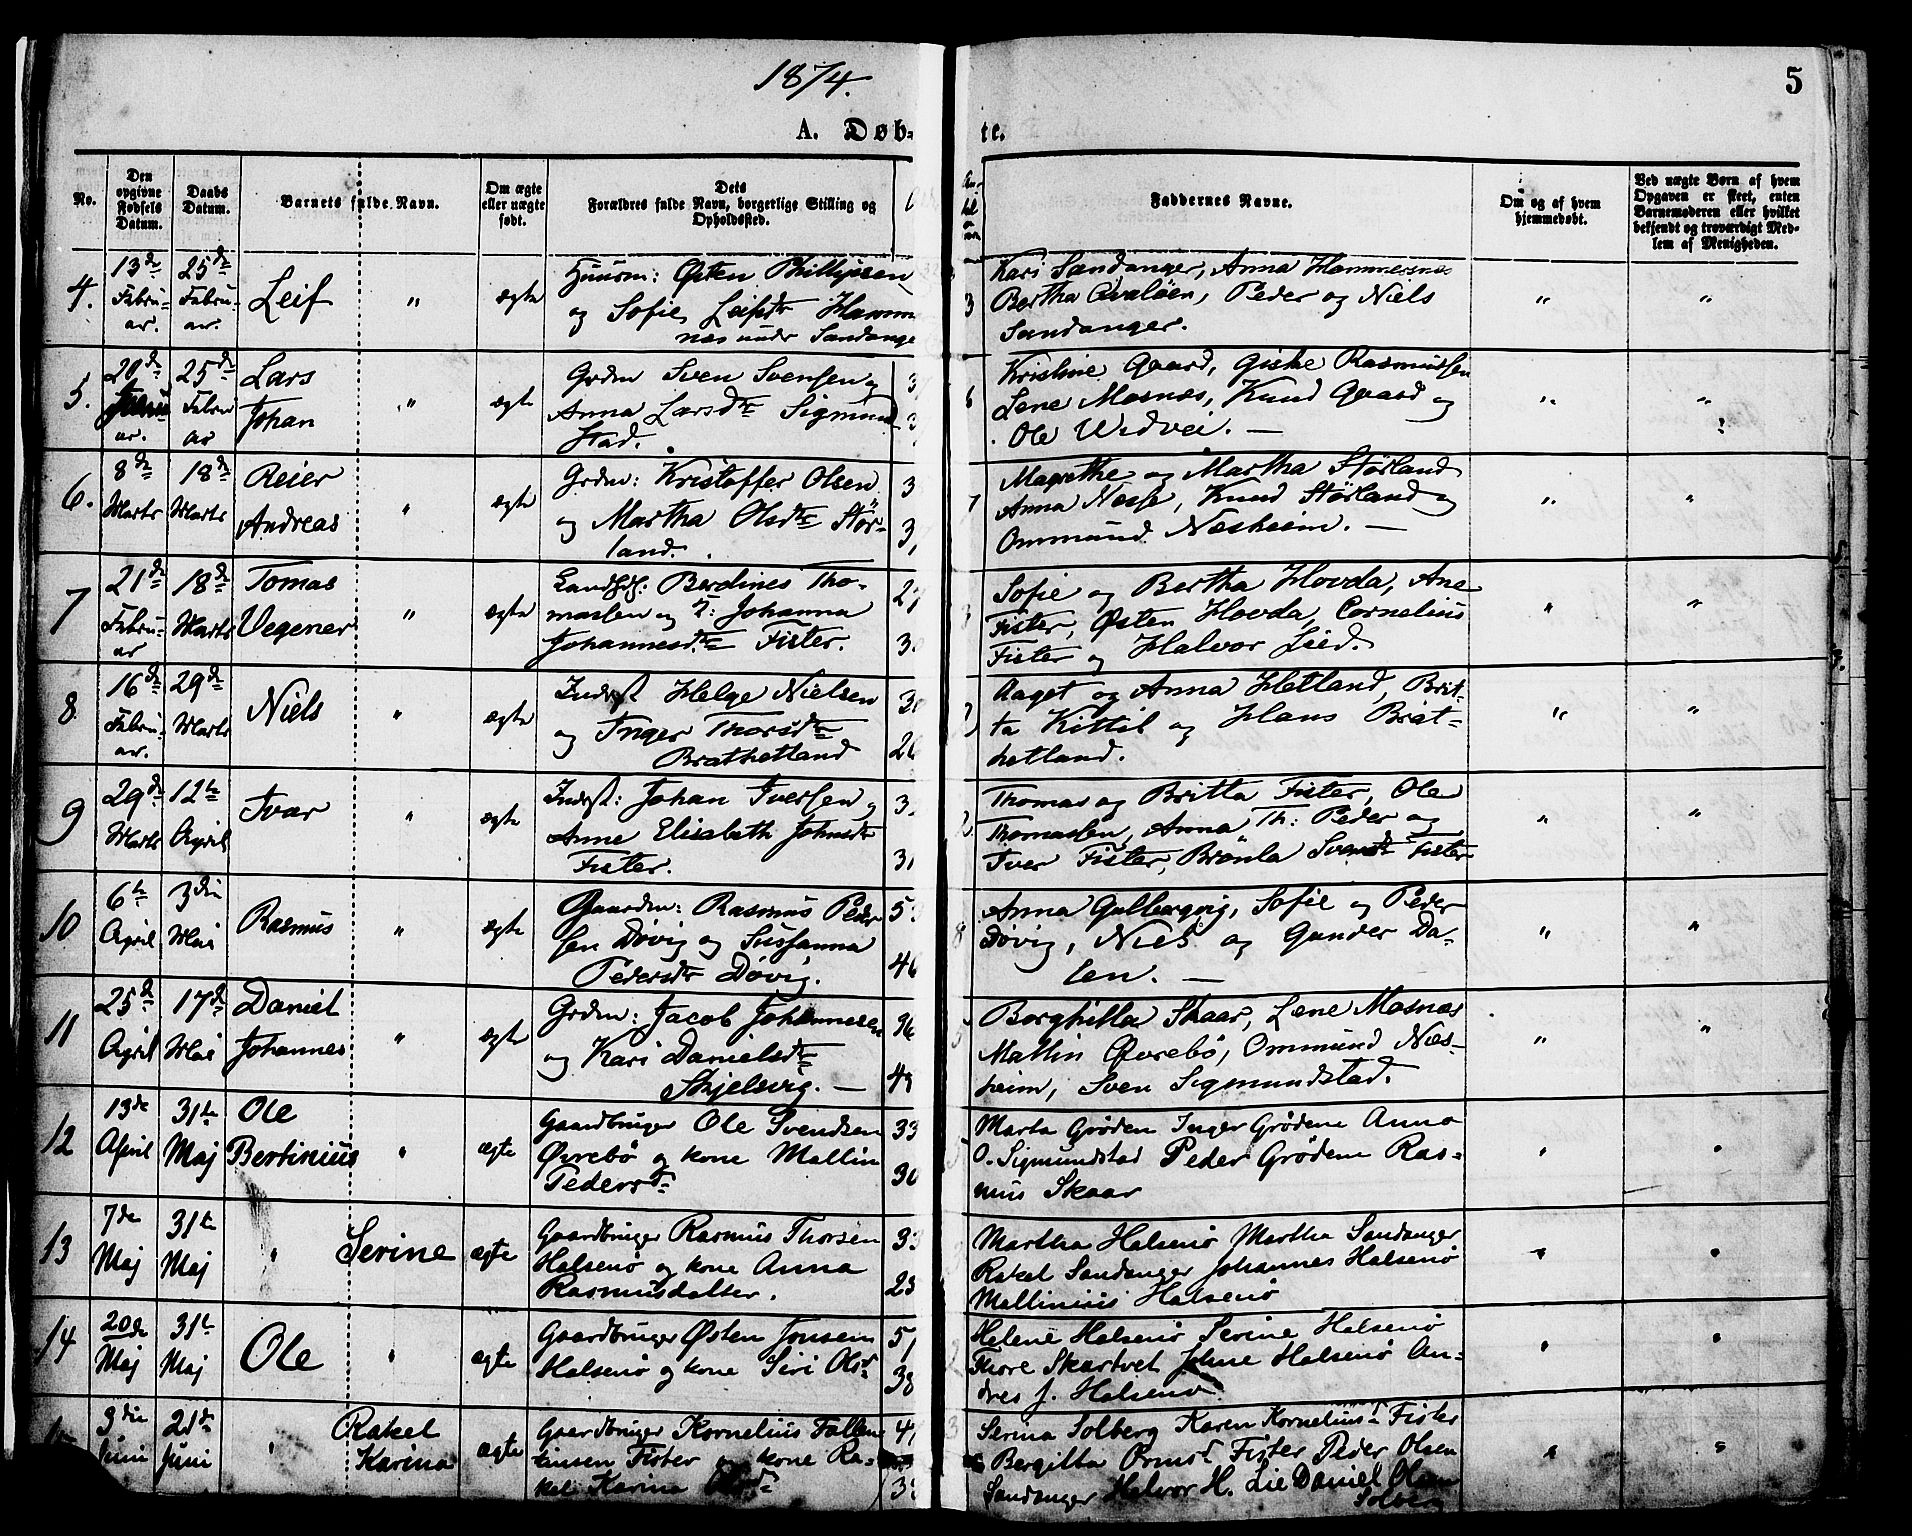 1874.
5
A. Døb-
te.
No.
Den opgivne Fødsels Datum.
Daabs Datum.
Barnets fulde Navn.
Om ægte eller uægte født.
Dets Forældres fulde Navn, borgerlige Stilling og Opholdssted.
Faddernes Navne.
Om og af hvem hjemmedøbt.
Ved uægte Børn af hvem Opgaven er skeet, enten Barnemoderen eller hvilket bekjendt og troværdigt Medlem af Menigheden.
4. 13de Februar. 25de Februar. Leif " ægte
Huusm: Østen Phillipsen
og Sofie Leifsdtr Hammer
næs under Sandange
3 Kari Sandanger, Anna Hammersnes
Bertha Qvaløen, Peder og Niels
Sandanger.
" "
5. 25de Februar Lars Johan " ægte
Grdm Sven Svensen og
Anna Larsdtr Sigmund
stad.
6 Kristine Gaard, Giske Rasmussen
Lene Mosnæs, Knud Gaard og
Ole Widvei. —
" "
6. 8de Marts 18de Marts Reier Andreas " ægte
Grdm: Kristoffer Olsen
og Martha Olsdtr Stör-
land.
7 Magrethe og Martha Störland
Anna Nesse, Knud Störland og
Ommund Næsheim. —
" "
7 21de Februar 18de Marts Tomas Vegener " ægte
Landhdl: Berdines Tho-
massen og H: Johanna
Johannesdtr Fister.
27
Sofie og Bertha Hovda, Ane
Fister, Østen Hovda, Cornelius
Fister og Halvor Lied.
" "
8 16de Februar. 29de Marts Niels " ægte
Inderst Helge Nielsen
og Inger Thorsdtr
Brathetland
26
Aaget og Anna Hetland, Brit-
ta Kittil og Hans Brat-
hetland.
" "
9 29de Marts 12te April Ivar " ægte
Inderst: Johan Iversen og
Anne Elisabeth Johnsdtr
Fister.
31
Thomas og Britta Fister, Ole
Thomassen, Anna Th: Peder og
Iver Fister, Brönla Svendtr Fister
" "
10 6te April 3die Mai Rasmus " ægte
Gaardm: Rasmus Peder
sen Døvig og Sussanna
Pedersdtr Døvig.
46
8 Anna Gulbergvig, Sofie og Peder
Døvig, Niels og Gunder Da-
len. —
" "
11 25de April 17de Mai Daniel Johannes " ægte
Grdm: Jacob Johannesen
og Kari Danielsdtr
Skjelsvig. —
5 Borghilla Skaar, Lene Mosnæs
Mallin Øvrebö, Ommund Næs-
heim, Sven Sigmundstad.
" "
12 13de April 31te Maj Ole Bertinius " ægte
Gaardbruger Ole Svendsen
Øvrebö og kone Mallin
Pedersd
33
30
5 Marta Grøden Inger Grødene Anna
O. Sigmundstad Peder Grødem Ras-
mus Skaar
" "
13 7de Maj 31te Maj " Serine ægte
Gaardbruger Rasmus Thorsen
Halsenö og kone Anna
Rasmusdatter.
33
23
Martha Halsenö Martha Sandanger
Rakel Sandanger Johannes Halsenö
Mallinius Halsenö
" "
14 20de Maj 31te Maj Ole " ægte
Gaardbruger Østen Jonsen
Halsenö og kone Siri Olsd
51
38
Helene Halsenö Serine Halsenö
Thore Skartvet Johne Halsenö An-
dres J. Halsenö
" "
3die Juni 21de Juni " Rakel Karina ægte
Gaardbruger Kornelius Fallen-
tinsen Fister og kone Ra-
kel Karina Olsd
Serina Solberg Karen Korneliusd Fister
Bergitta Ormsd Fister Peder Olsen
Sandanger Halvor H. Lie Daniel Olsen
Solberg
" "